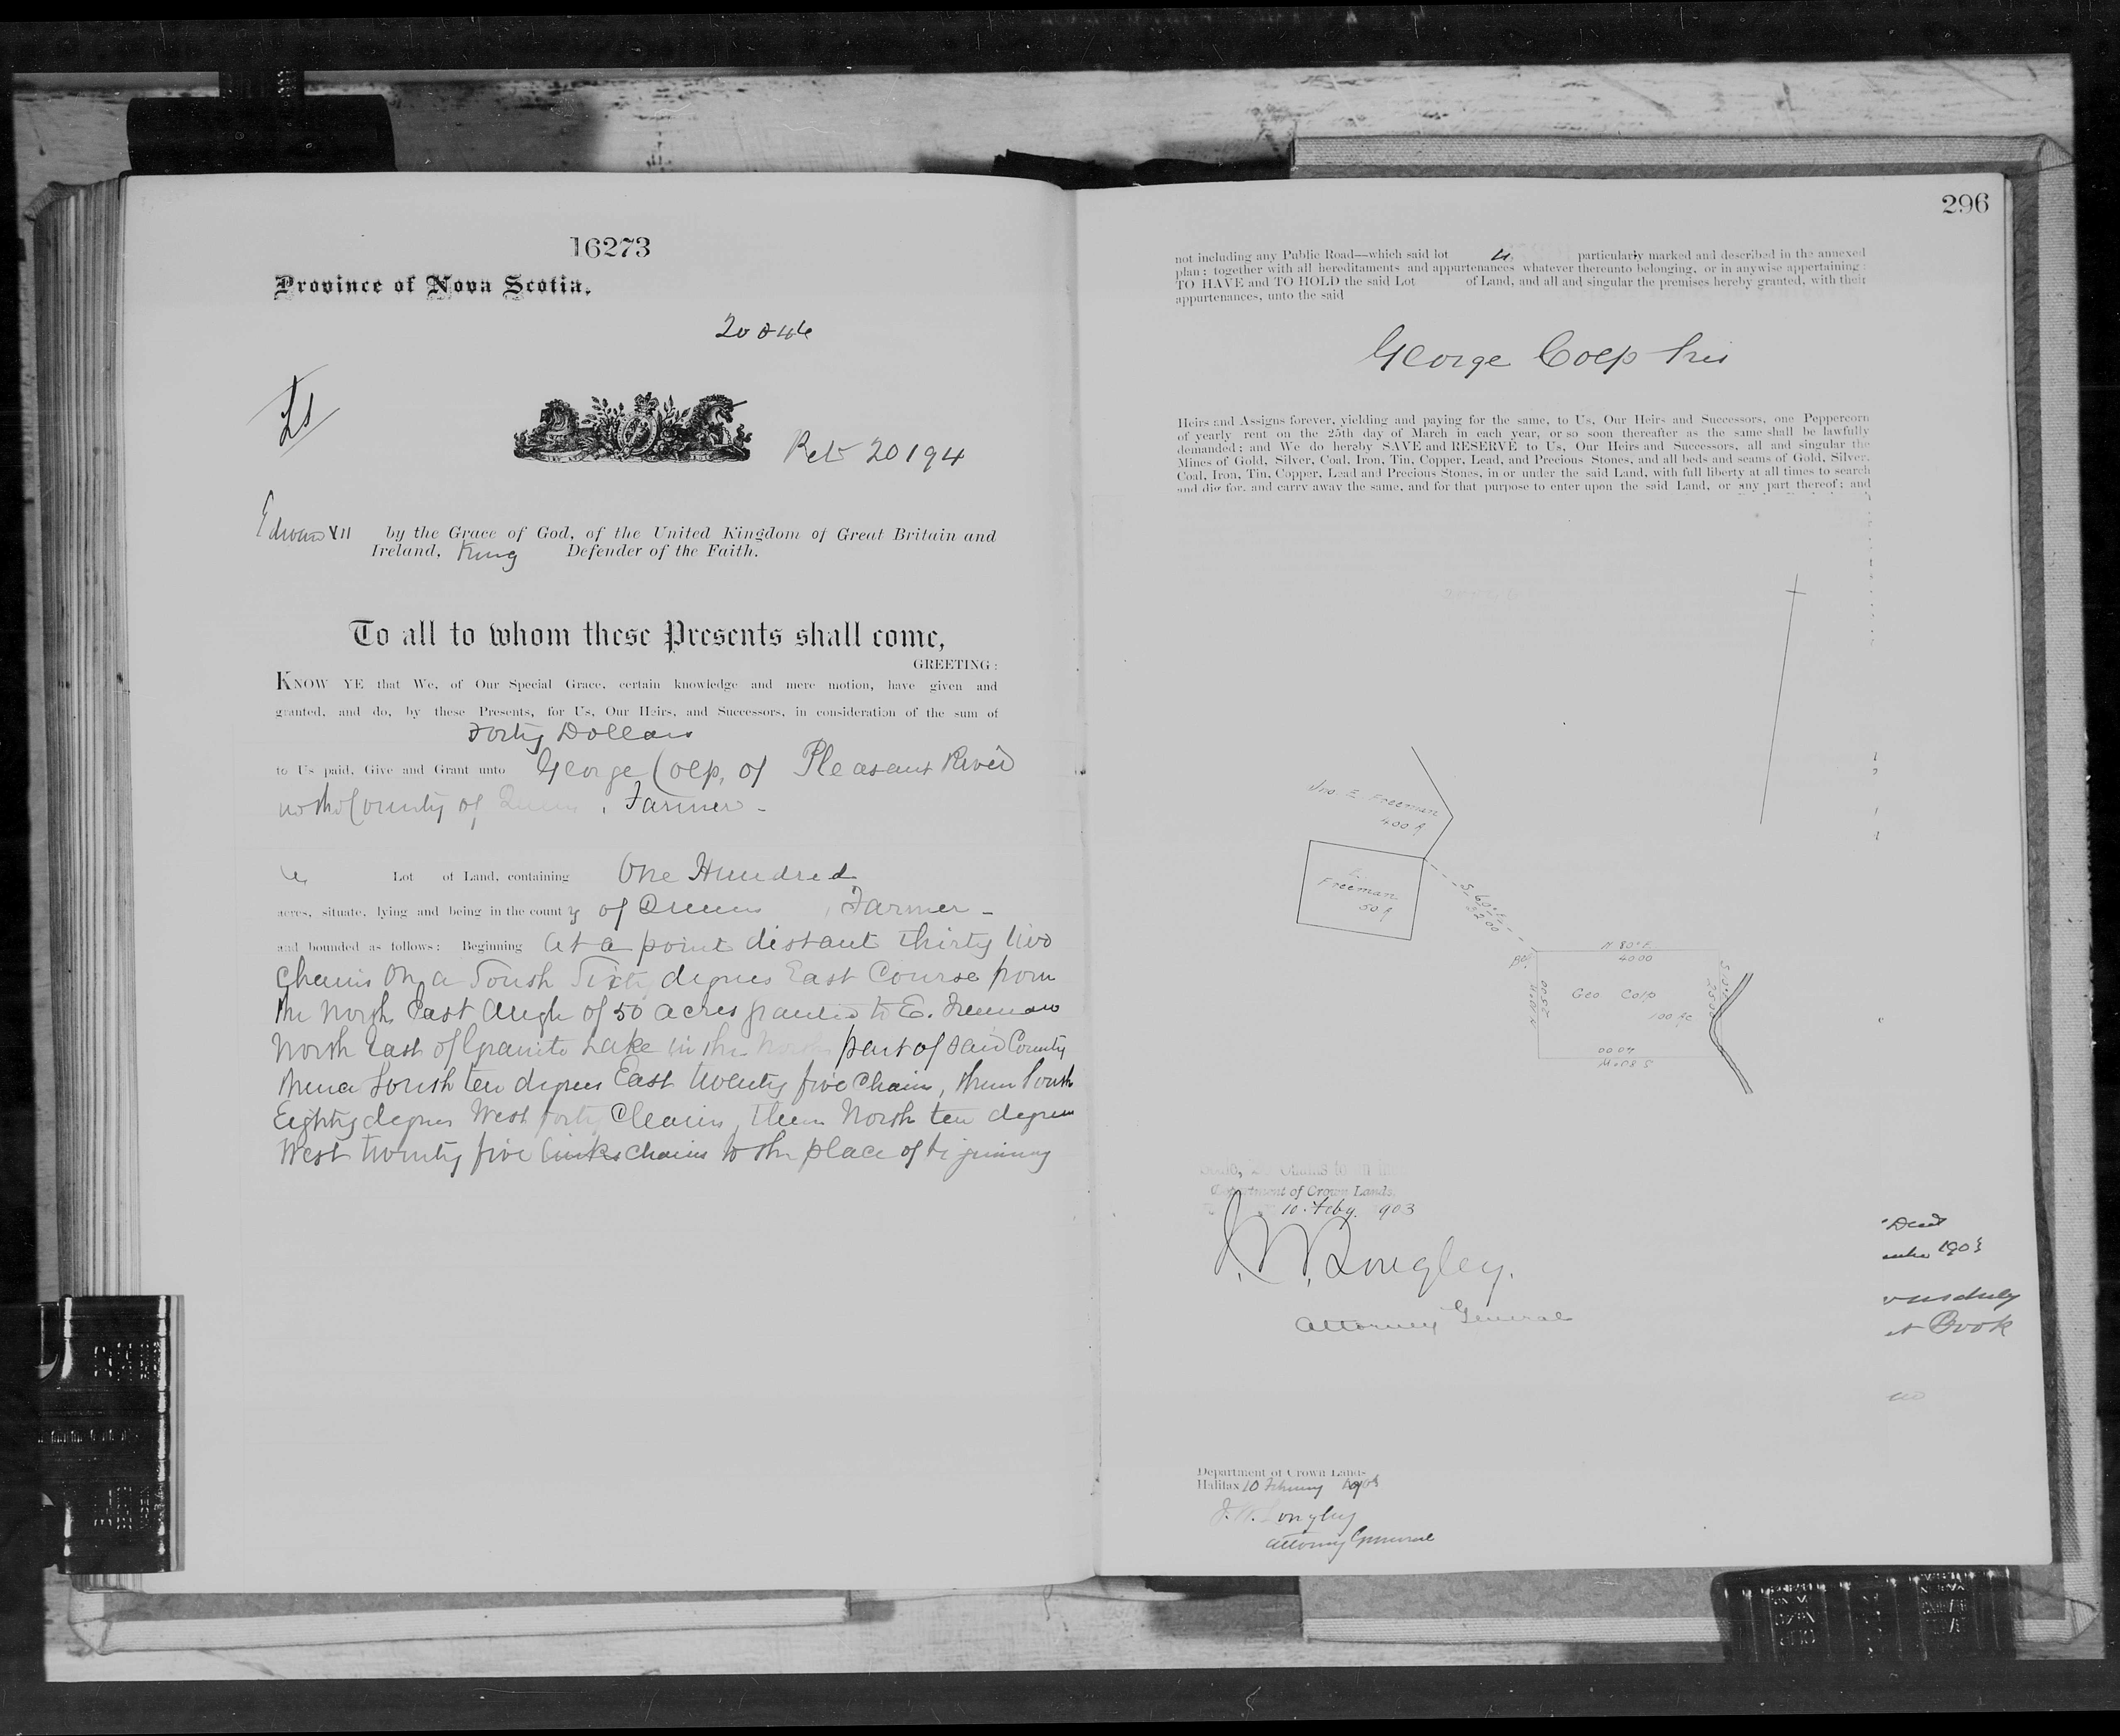 16273
Province of Nova Scotia.
Ls
Pet 20194
Edward VII by the Grace of God, of the United Kingdom of Great Britain and
Ireland, King Defender of the Faith.
To all to whom these Presents shall come,
GREETING:
KNOW YE that We, of Our Special Grace, certain knowledge and mere motion, have given and
granted, and do, by these Presents, for Us, Our Heirs, and Successors, in consideration of the sum of
Forty Dollars
to Us paid, Give and Grant unto George Colp, of Pleasant River
County of Queens, Farmer -
Lot of Land, containing One Hundred
acres, situate, lying and being in the county of Queens, Farmer -
and bounded as follows: Beginning At a point distant thirty two
Chains on a South Sixty degrees East Course from
the North East Angle of 50 acres granted to E. Freeman
North East of Granite Lake in the North part of said County
thence South ten degrees East twenty five chains, thence South
Eighty degrees West forty Chains, thence North ten degrees
West twenty five links chains to the place of beginning
296
not including any Public Road—which said lot is particularly marked and described in the annexed
plan; together with all hereditaments and appurtenances whatever thereunto belonging, or in anywise appertaining:
TO HAVE and TO HOLD the said Lot of Land, and all and singular the premises hereby granted, with their
appurtenances, unto the said
George Colp his
Heirs and Assigns forever, yielding and paying for the same, to Us, Our Heirs and Successors, one Peppercorn
of yearly rent on the 25th day of March in each year, or so soon thereafter as the same shall be lawfully
demanded; and We do hereby SAVE and RESERVE to Us, Our Heirs and Successors, all and singular the
Mines of Gold, Silver, Coal, Iron, Tin, Copper, Lead, and Precious Stones, and all beds and seams of Gold, Silver,
Coal, Iron, Tin, Copper, Lead and Precious Stones, in or under the said Land, with full liberty at all times to search
and dig for, and carry away the same, and for that purpose to enter upon the said Land, or any part thereof; and
Jno. E. Freeman
400 A
Freeman
50 A
S 60° E
3200
Beg.
N 80° E
4000
N 10° W
2500
Geo Colp
100 Ac
S 10° E
2500
4000
S 80° W
Scale, 20 Chains to an inch
Department of Crown Lands,
10. Feby. 1903
J. W. Longley.
Attorney General
Deed
1903
duly
Book
Department of Crown Lands
Halifax 10 February 1903
J. W. Longley
Attorney General